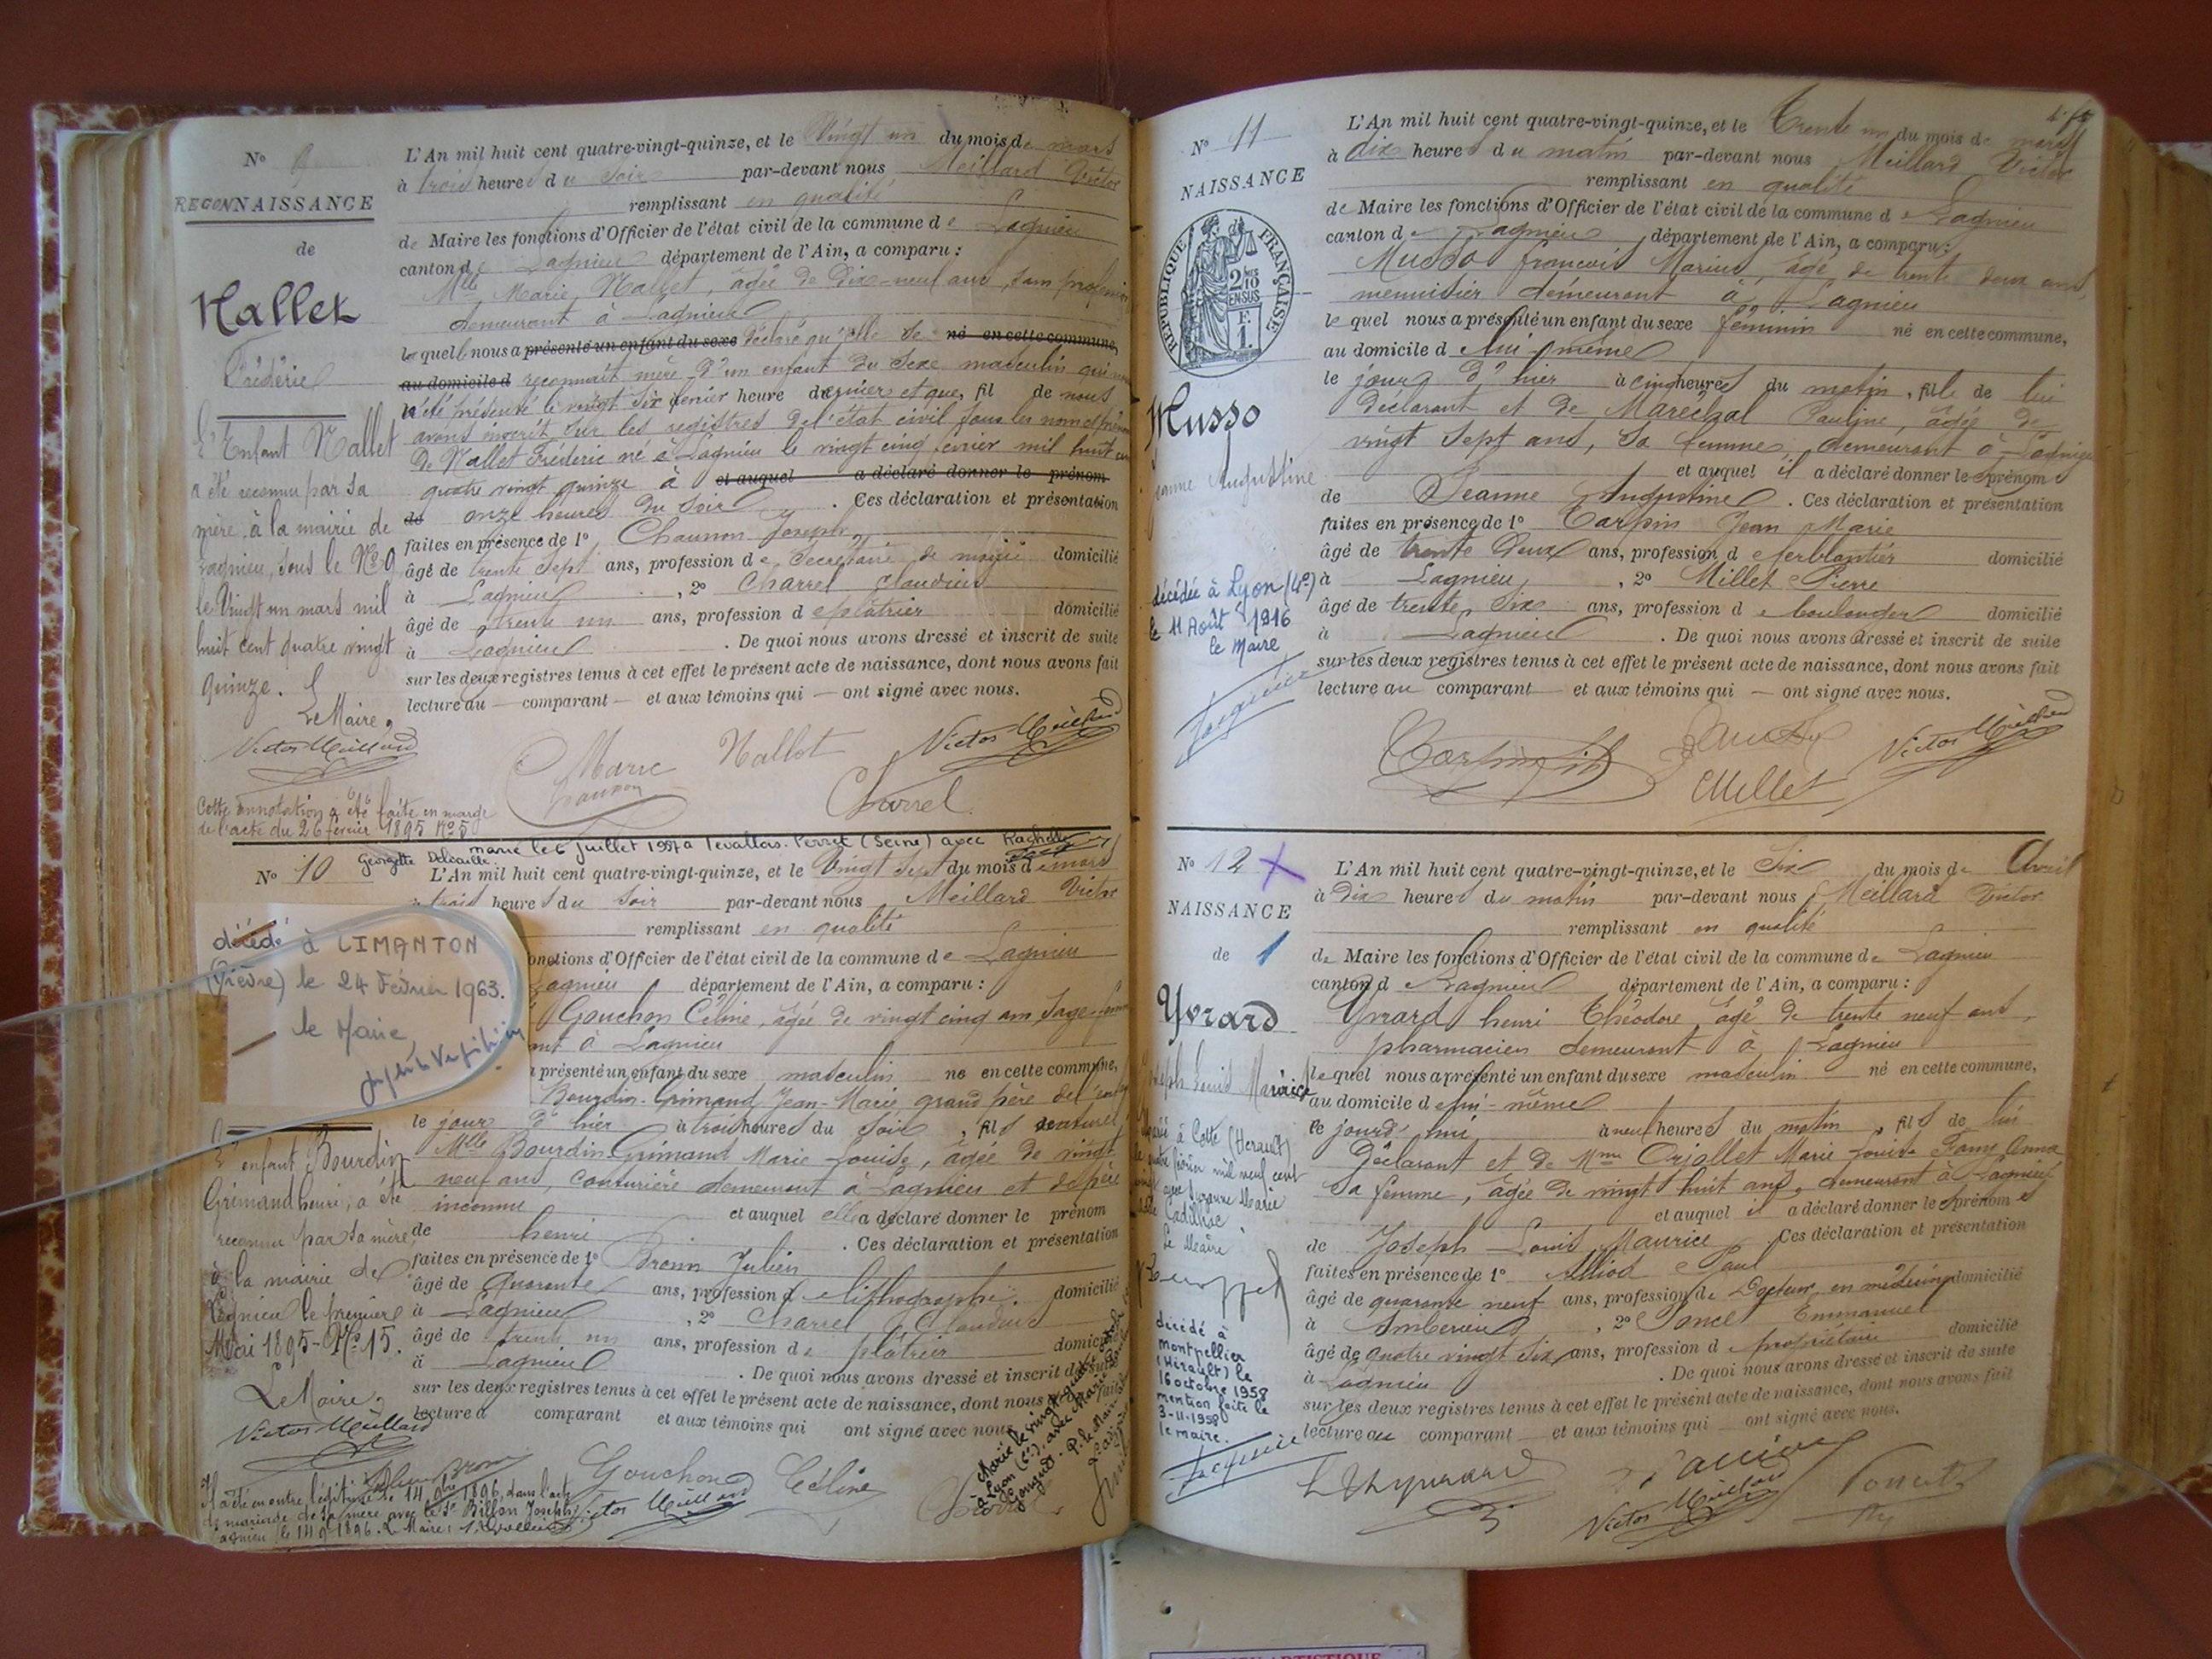 N° 9
RECONNAISSANCE
de
Nallet
Frédéric
L'Enfant Nallet
a été reconnu par sa
mère à la mairie de
Lagnieu, sous le N° 9
le Vingt un mars mil
huit cent quatre vingt
quinze.
Le Maire,
Victor Meillard
Cette annotation a été faite en marge
de l'acte du 26 février 1895 N° 5
L'An mil huit cent quatre-vingt-quinze, et le Vingt un du mois de mars
à trois heures du soir par-devant nous Meillard Victor
remplissant en qualité
de Maire les fonctions d'Officier de l'état civil de la commune de Lagnieu
canton de Lagnieu département de l'Ain, a comparu :
Mlle Marie Nallet, âgée de Dix-neuf ans, sans profession
demeurant à Lagnieu
laquelle nous a présenté un enfant du sexe déclaré qu'elle se né en cette commune,
au domicile d reconnait mère d'un enfant du sexe masculin qui nous
a été présenté le vingt six février heure dernier et que, fil de nous
avons inscrit sur les registres de l'état civil sous les nom et prénom
de Nallet Frédéric né à Lagnieu le vingt cinq février mil huit cent
quatre vingt quinze à et auquel a déclaré donner le prénom
de onze heures du soir. Ces déclaration et présentation
faites en présence de 1° Chaunon Joseph
âgé de trente sept ans, profession de Secrétaire de mairie domicilié
à Lagnieu, 2° Charrel Claudius
âgé de trente un ans, profession de plâtrier domicilié
à Lagnieu. De quoi nous avons dressé et inscrit de suite
sur les deux registres tenus à cet effet le présent acte de naissance, dont nous avons fait
lecture au comparant et aux témoins qui ont signé avec nous.
Marie Nallet Victor Meillard
Chaunon Charrel
marié le 6 juillet 1957 à Levallois-Perret (Seine) avec Rachelle
Georgette Delvaille
N° 10
décédé à LIMANTON
(Nièvre) le 24 Février 1963.
le Maire,
L'enfant Bourdin
Grimand henri, a été
reconnu par sa mère
à la mairie de
Lagnieu le premier
Mai 1895 - N° 15.
Le Maire,
Victor Meillard
L'An mil huit cent quatre-vingt-quinze, et le Vingt sept du mois de mars
trois heures du soir par-devant nous Meillard Victor
remplissant en qualité
fonctions d'Officier de l'état civil de la commune de Lagnieu
Lagnieu département de l'Ain, a comparu :
Gouchon Céline, âgée de vingt cinq ans, Sage-femme
à Lagnieu
a présenté un enfant du sexe masculin né en cette commune,
Bourdin-Grimand Jean-Marie grand père de l'enfant
le jour d'hier à trois heures du soir, fils naturel
Mlle Bourdin-Grimand Marie-Louise, âgée de vingt
neuf ans, couturière demeurant à Lagnieu et de père
inconnu et auquel elle a déclaré donner le prénom
de henri. Ces déclaration et présentation
faites en présence de 1° Bronn Julien
âgé de quarante ans, profession de lithographe. domicilié
à Lagnieu, 2° Charrel Claudius
âgé de trente un ans, profession de plâtrier domicilié
à Lagnieu. De quoi nous avons dressé et inscrit de suite
sur les deux registres tenus à cet effet le présent acte de naissance, dont nous avons fait
lecture à comparant et aux témoins qui ont signé avec nous.
Gouchon Céline
Victor Meillard
de mariage de sa mère avec le Sr Billon Joseph
N° 11
NAISSANCE
RÉPUBLIQUE FRANÇAISE
2/10 EN SUS
F. 1.
Musso
Jeanne Augustine
décédée à Lyon (4e)
le 11 Août 1916
le Maire
L'An mil huit cent quatre-vingt-quinze, et le Trente un du mois de mars
à dix heures du matin par-devant nous Meillard Victor
remplissant en qualité
de Maire les fonctions d'Officier de l'état civil de la commune de Lagnieu
canton de Lagnieu, département de l'Ain, a comparu :
Musso françois Marius, âgé de trente deux ans,
menuisier demeurant à Lagnieu
lequel nous a présenté un enfant du sexe féminin né en cette commune,
au domicile de lui-même
le jour d'hier à cinq heures du matin, fille de lui
déclarant et de Maréchal Pauline, âgée de
vingt sept ans, sa femme, demeurant à Lagnieu
et auquel il a déclaré donner le prénom s
de Jeanne Augustine. Ces déclaration et présentation
faites en présence de 1° Carpin Jean Marie
âgé de trente deux ans, profession de ferblantier domicilié
à Lagnieu, 2° Millet Pierre
âgé de trente six ans, profession de boulanger domicilié
à Lagnieu. De quoi nous avons dressé et inscrit de suite
sur les deux registres tenus à cet effet le présent acte de naissance, dont nous avons fait
lecture au comparant et aux témoins qui ont signé avec nous.
Millet Victor Meillard
N° 12
NAISSANCE
de 1
Yvrard
Joseph Louis Maurice
Cadilhac
Le Maire
décédé à
Montpellier
(Hérault) le
16 octobre 1958
mention faite le
3-11-1958
le maire.
L'An mil huit cent quatre-vingt-quinze, et le Six du mois de Avril
à Dix heures du matin par-devant nous Meillard Victor
remplissant en qualité
de Maire les fonctions d'Officier de l'état civil de la commune de Lagnieu
canton de Lagnieu département de l'Ain, a comparu :
Yvrard henri Théodore âgé de trente neuf ans,
pharmacien demeurant à Lagnieu
lequel nous a présenté un enfant du sexe masculin né en cette commune,
au domicile de lui-même
le jourd'hui à neuf heures du matin, fils de lui
Déclarant et de Mme Oriollet Marie Louise Fany Anna
sa femme, âgée de vingt huit ans, demeurant à Lagnieu
et auquel il a déclaré donner le prénom s
de Joseph Louis Maurice. Ces déclaration et présentation
faites en présence de 1° Alliod Paul
âgé de quarante neuf ans, profession de Docteur en médecine domicilié
à Ambérieu, 2° Emmanuel
âgé de quatre vingt six ans, profession de propriétaire domicilié
à Lagnieu. De quoi nous avons dressé et inscrit de suite
sur les deux registres tenus à cet effet le présent acte de naissance, dont nous avons fait
lecture au comparant et aux témoins qui ont signé avec nous.
Victor Meillard